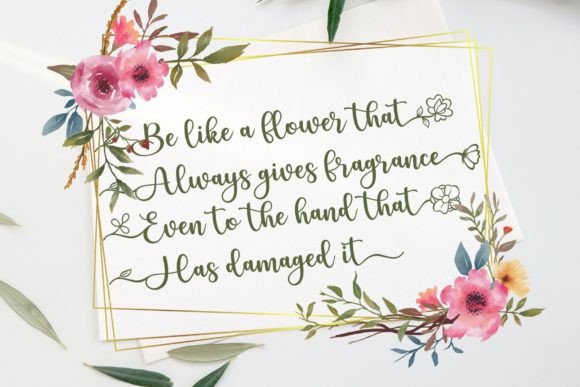 Be like a flower that
Always gives fragrance
Even to the hand that
Has damaged it